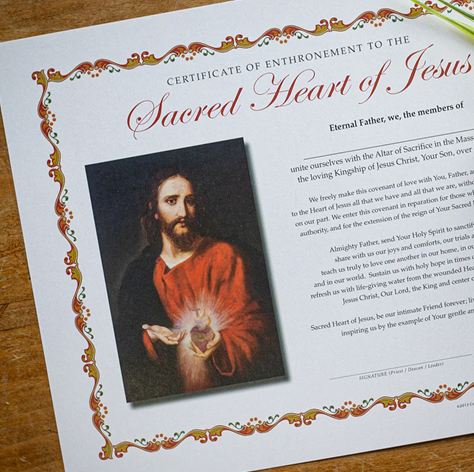 CERTIFICATE OF ENTHRONEMENT TO THE
Sacred Heart of Jesus
Eternal Father, we, the members of
unite ourselves with the Altar of Sacrifice in the Mass
the loving Kingship of Jesus Christ, Your Son, over
We freely make this covenant of love with You, Father,
to the Heart of Jesus all that we have and all that we are, with
on our part. We enter this covenant in reparation for those
authority, and for the extension of the reign of Your Sacred
Almighty Father, send Your Holy Spirit to sanctif
share with us our joys and comforts, our trials
teach us truly to love one another in our home, in
and in our world. Sustain us with holy hope in times
refresh us with life-giving water from the wounded Hear
Jesus Christ, Our Lord, the King and center
Sacred Heart of Jesus, be our intimate Friend forever;
inspiring us by the example of Your gentle an
SIGNATURE (Priest / Deacon / Leader)